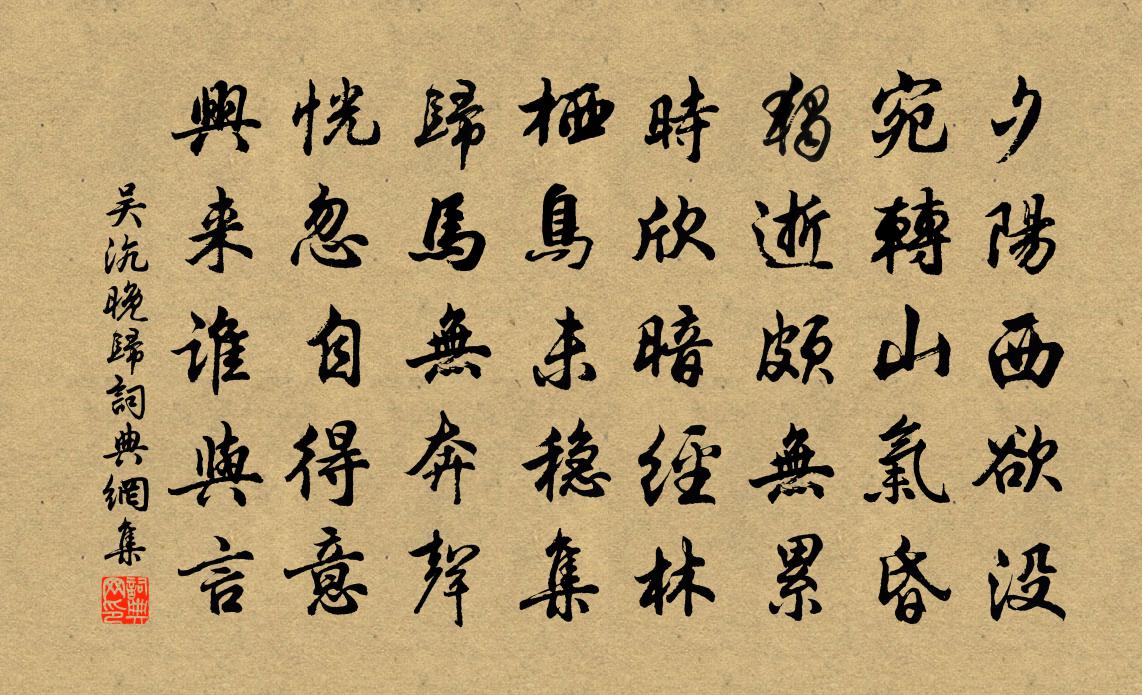 夕陽西欲没
宛轉山氣昏
獨逝頗無累
時欣暗經林
栖鳥未穏集
歸馬無奔聲
恍忽自得意
興来誰與言
吴沆晚歸詞典網集
詞典网印